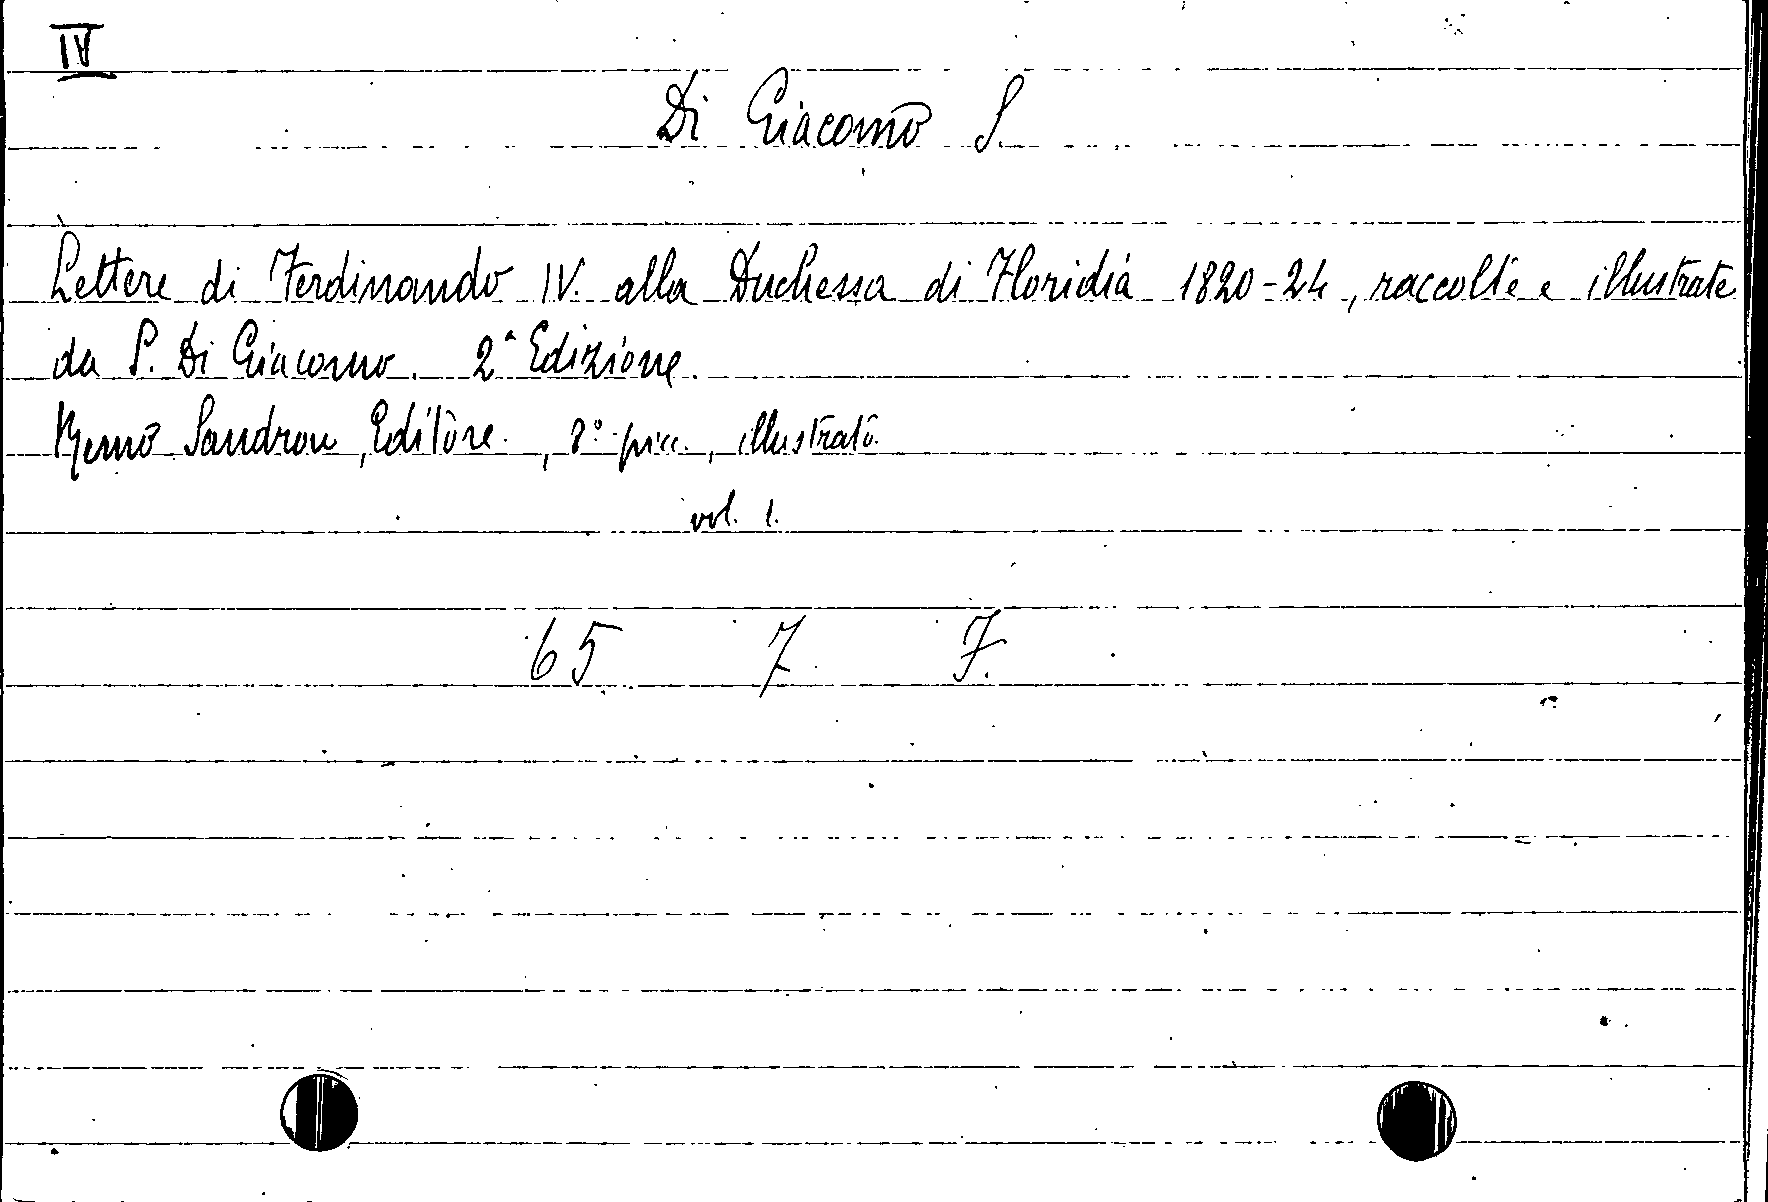 IV
Di Giacomo S.
Lettere di Ferdinando IV. alla Duchessa di Floridia 1820-24, raccolte e illustrate
da S. Di Giacomo. 2ª Edizione.
Remo Sandron, Editore., 8° picc., illustrato.
vol. 1.
65 7 7.